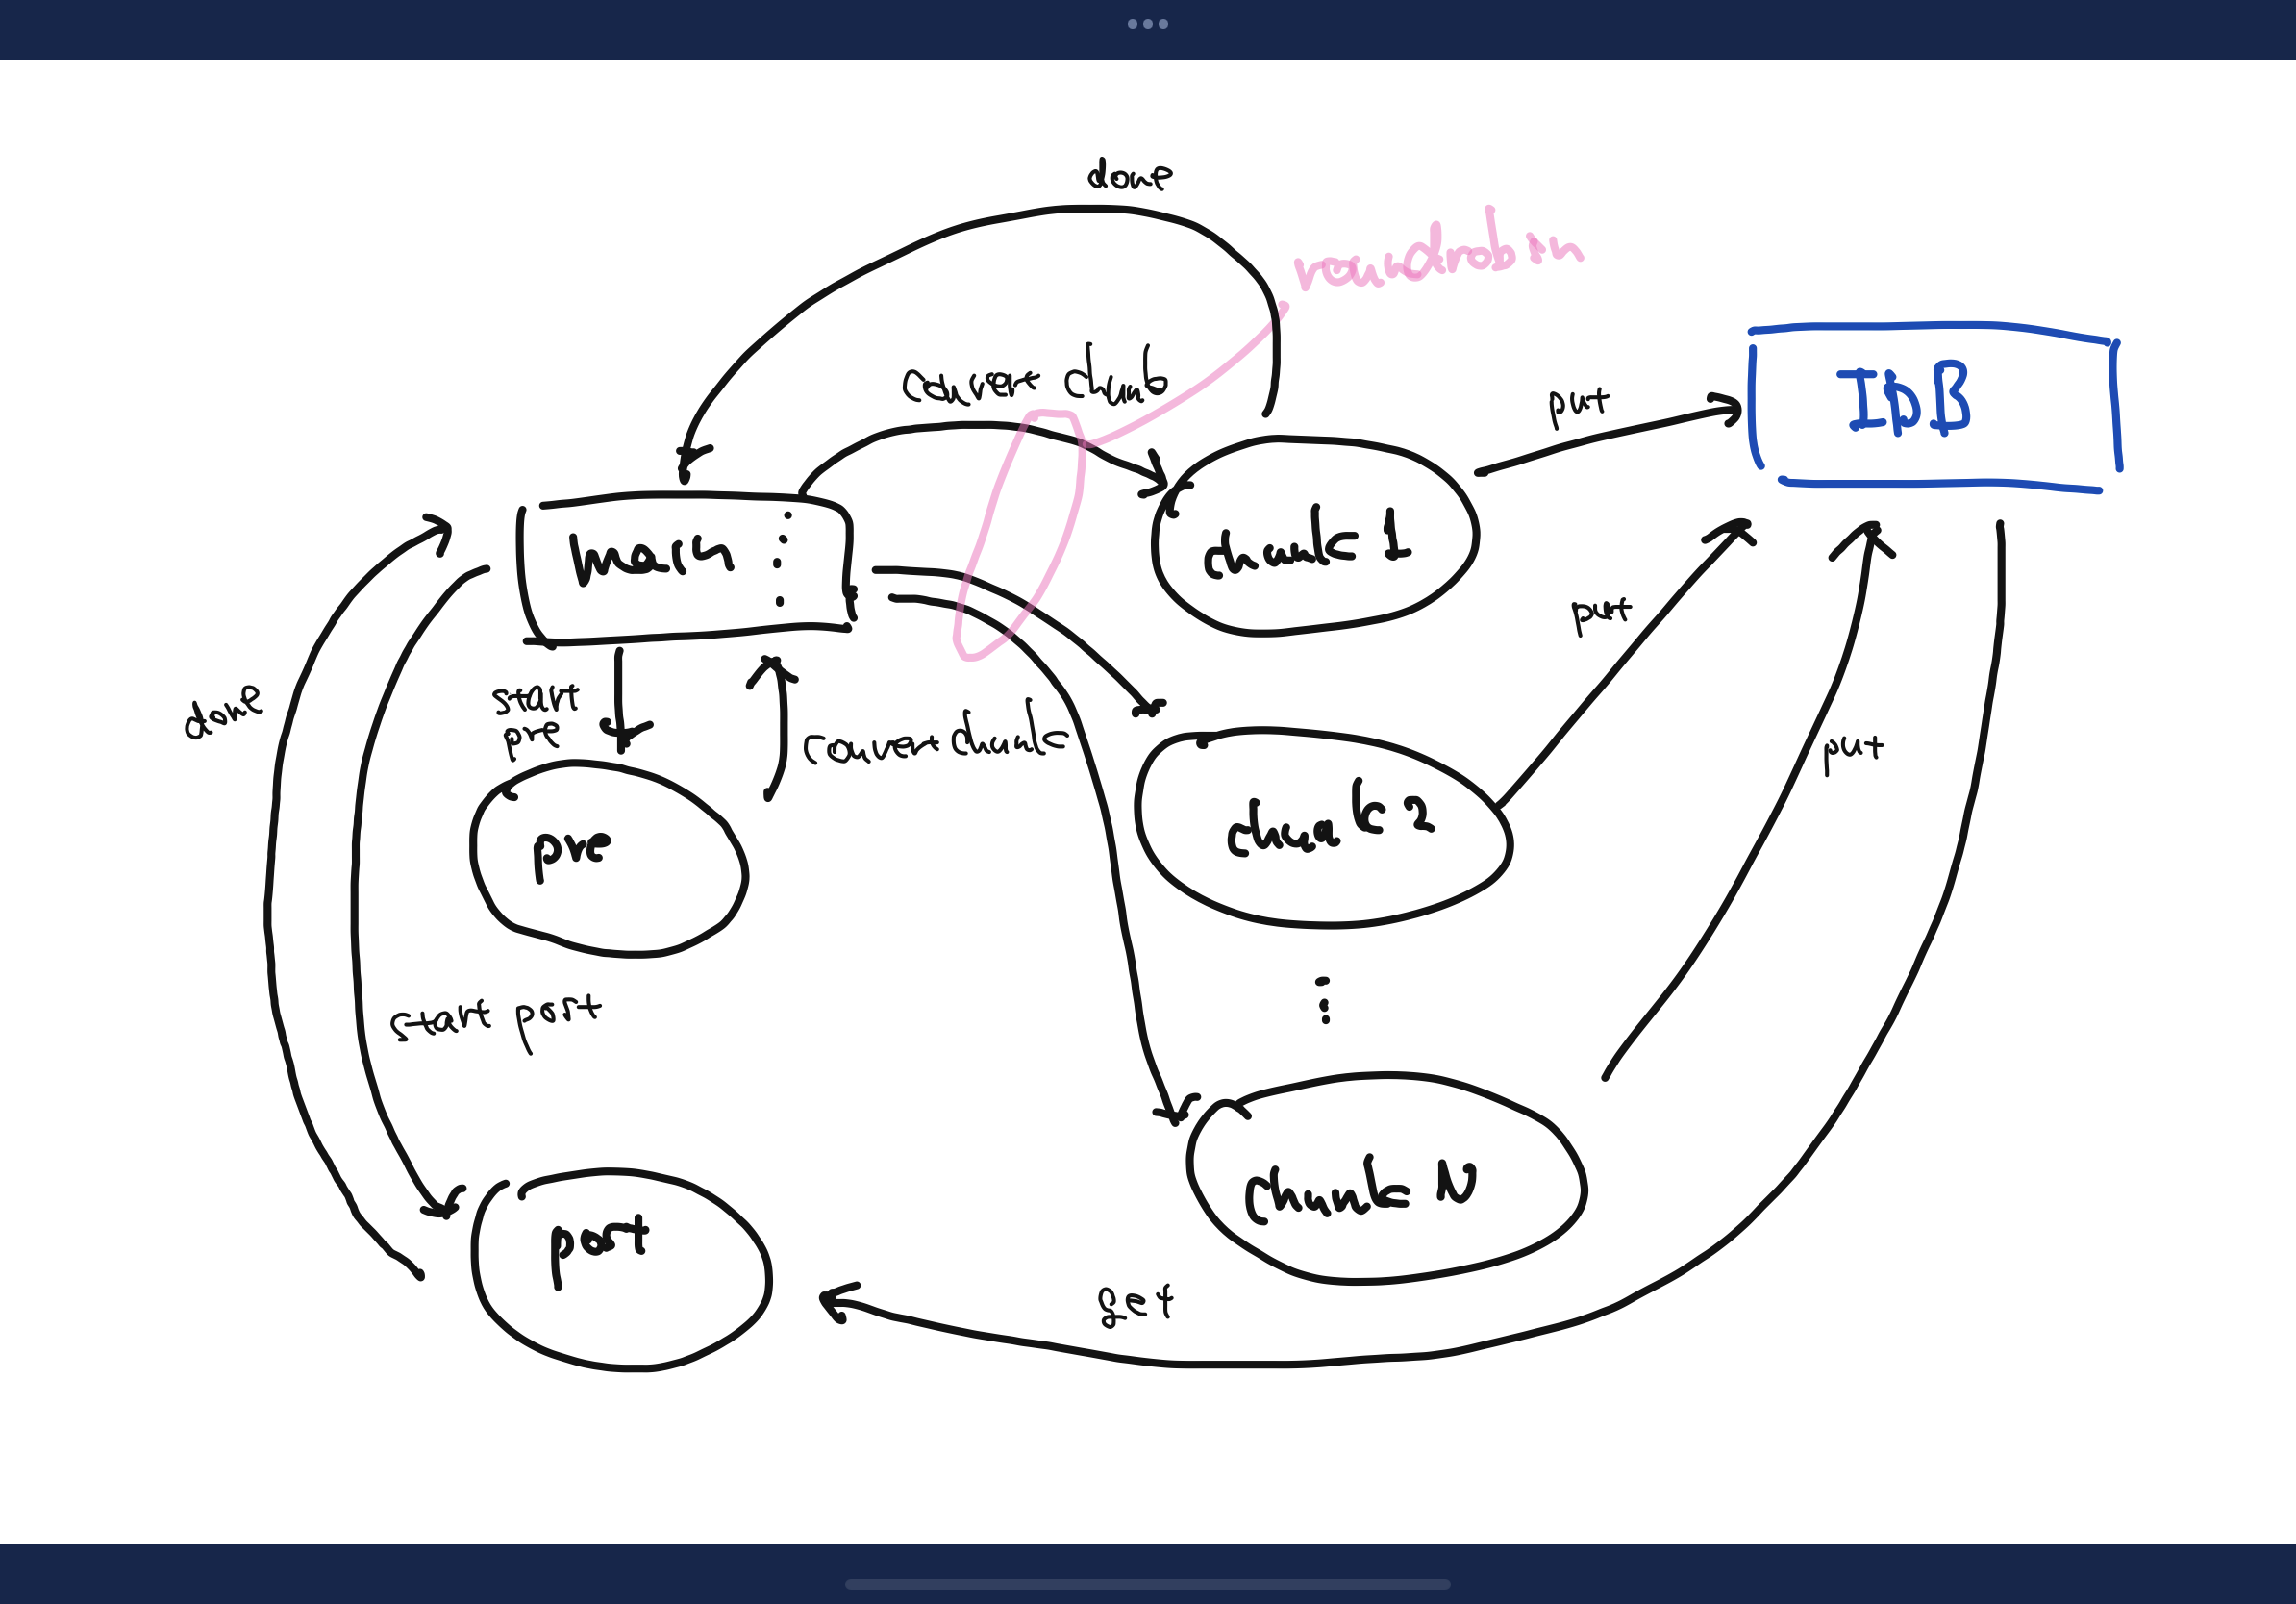 done
roundrobin
convert chunk
IDB
put
main
chunk 1
put
start
pre
done
convert chunk
put
pre
chunk 2
start post
post
chunk N
get